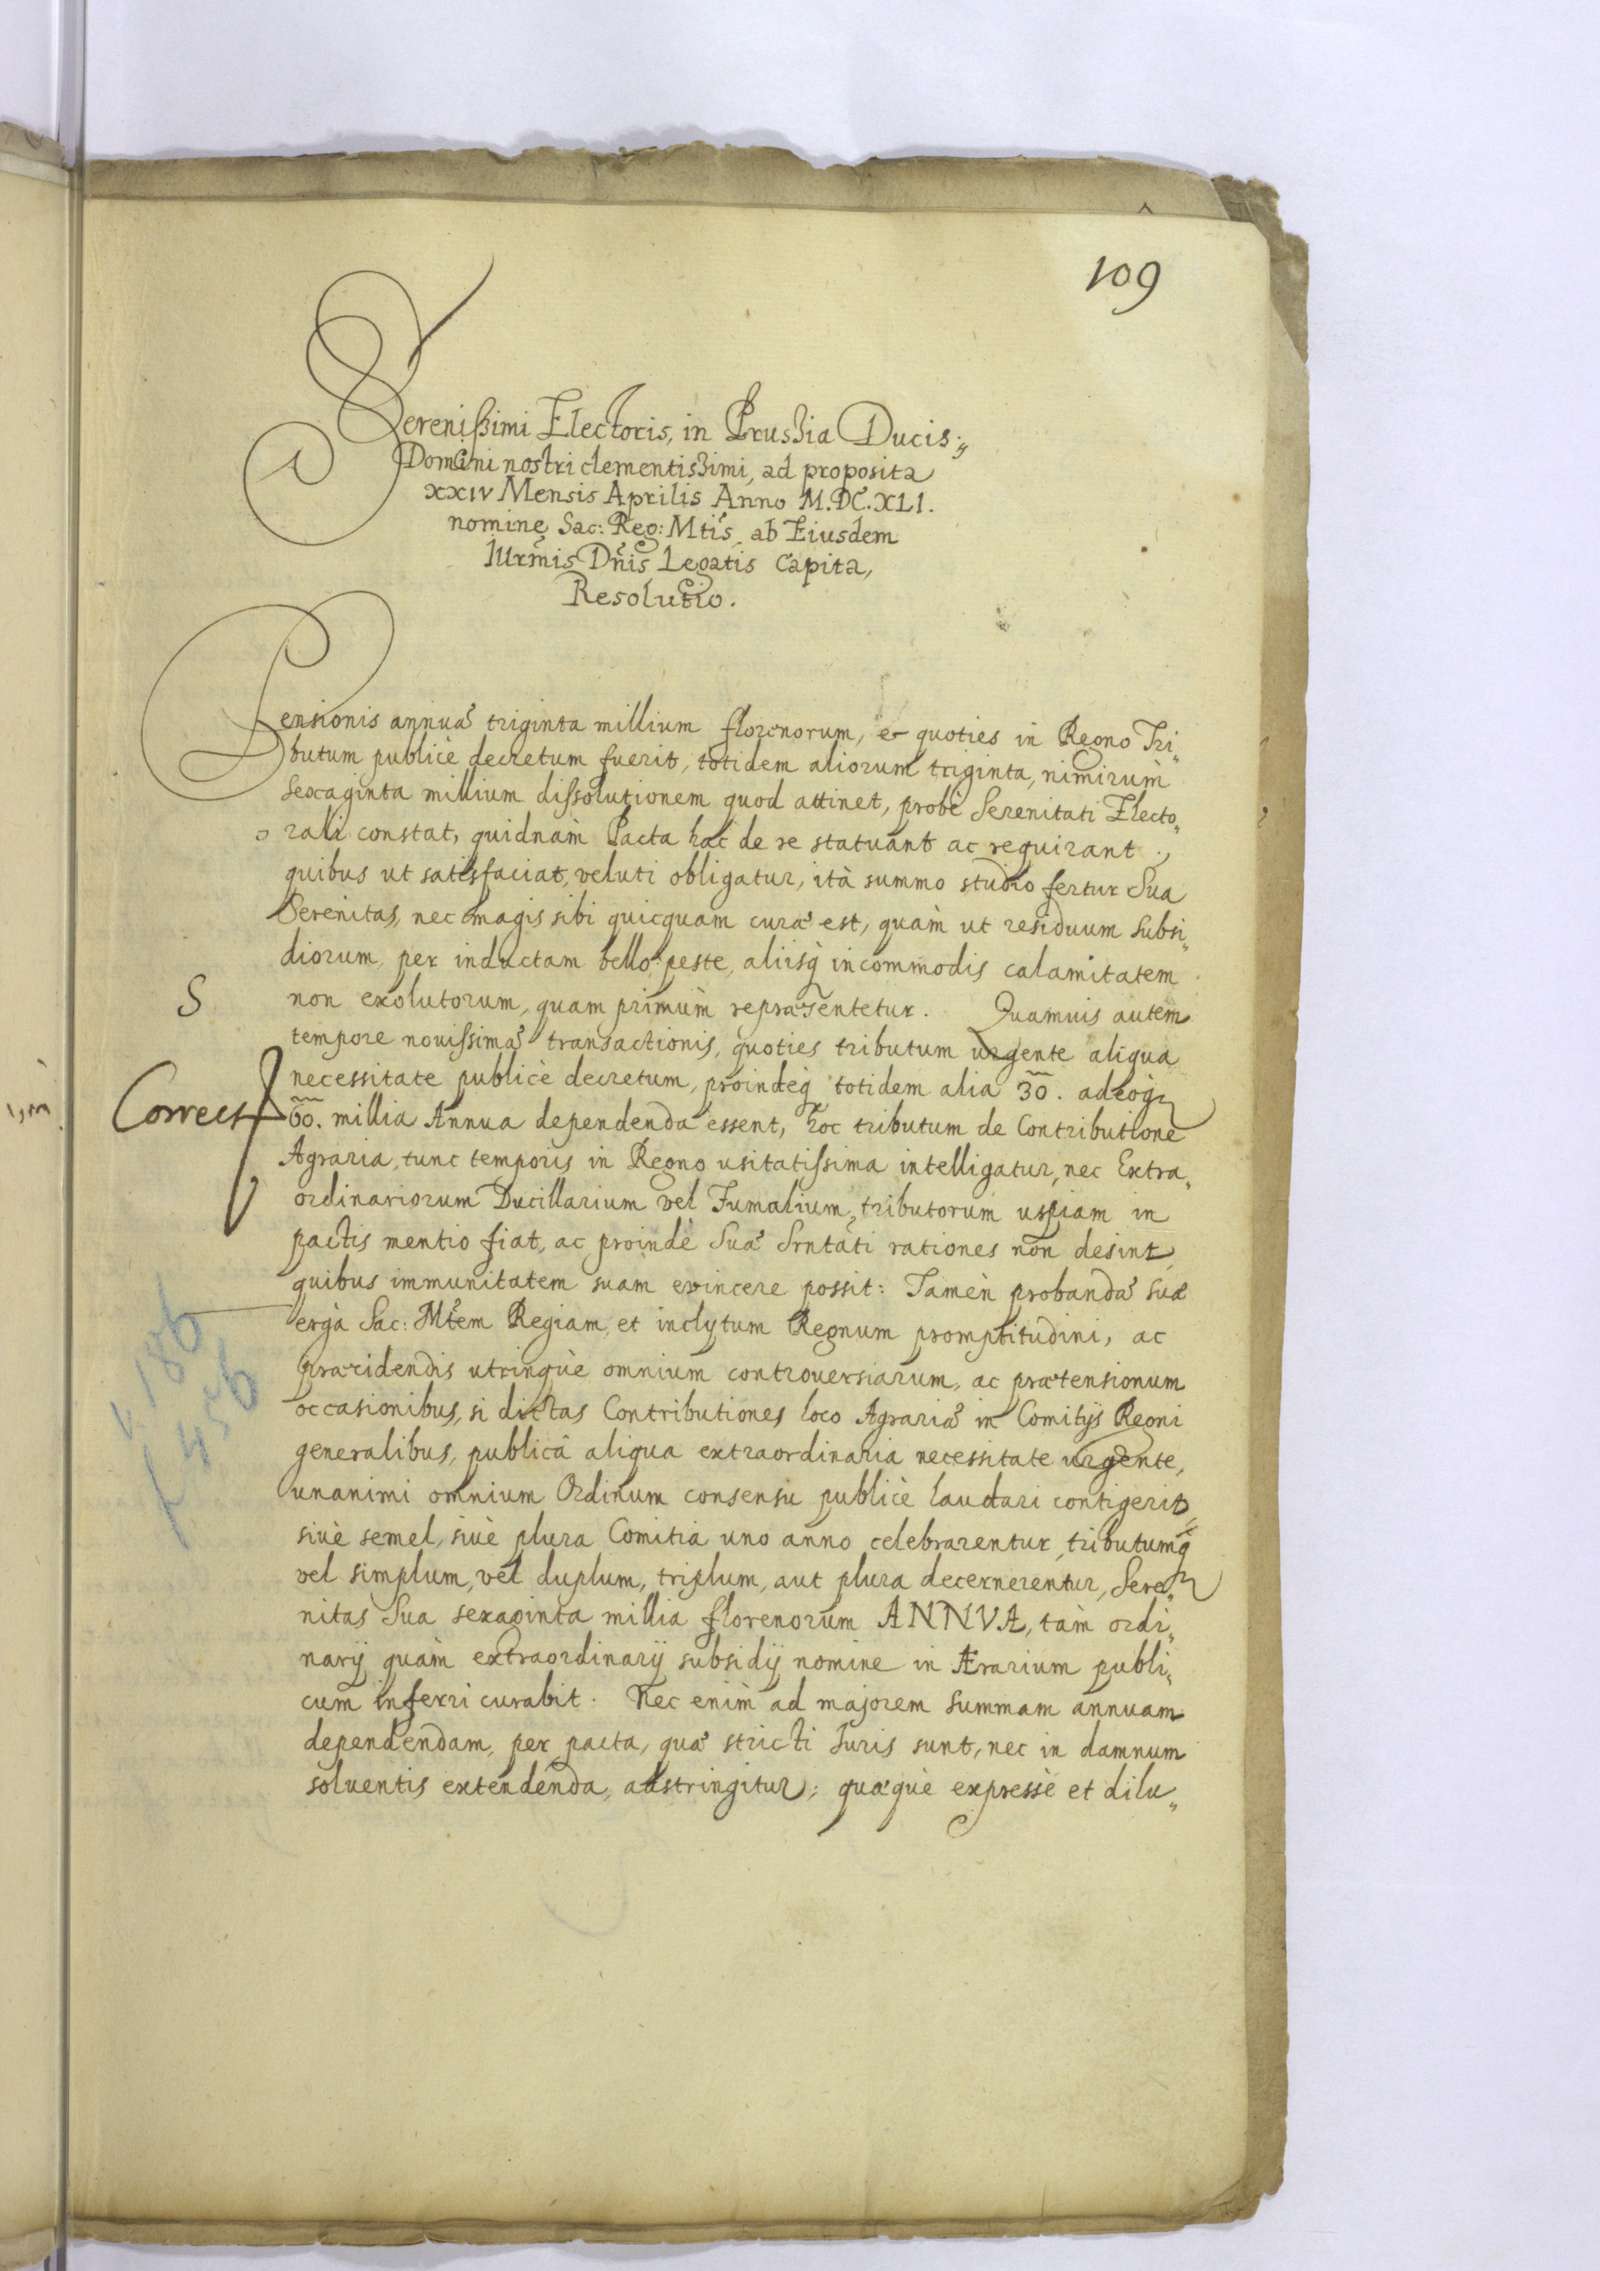 109
Serenissimi Electoris, in Prussia Ducis,
Domini nostri clementissimi, ad proposita
XXIV Mensis Aprilis Anno M.DC.XLI.
nomine Sac: Reg: Mtis, ab Eiusdem
Illrmis Dnis Legatis Capita,
Resolutio.
Pensionis annuæ triginta millium florenorum, et quoties in Regno Tri„
butum publicè decretum fuerit, totidem aliorum triginta, nimirùm
sexaginta millium dissolutionem quod attinet, probè Serenitati Electo„
rali constat, quidnam Pacta hac de re statuant ac requirant;
quibus ut satisfaciat, veluti obligatur, ità summo studio fertur Sua
Serenitas, nec magis sibi quicquam curæ est, quàm ut residuum subsi„
diorum, per inductam bello, peste, aliisq incommodis calamitatem
S non exolutorum, quam primùm repræsentetur. Quamuis autem
tempore nouissimæ transactionis, quoties tributum urgente aliqua
necessitate publicè decretum, proindeq totidem alia 30. adeoq
Correct 60. millia Annua dependenda essent, hoc tributum de Contributione
Agraria, tunc temporis in Regno usitatissima intelligatur, nec Extra„
ordinariorum Ducillarium vel Fumalium, tributorum uspiam in
pactis mentio fiat, ac proindè Suæ Srntati rationes non desint,
quibus immunitatem suam evincere possit: Tamèn probandæ suæ
ergà Sac: Mtem Regiam, et inclytum Regnum promptitudini, ac
v. 186
præcidendis utrinquè omnium controuersiarum, ac prætensionum
f 456
occasionibus, si dictas Contributiones loco Agrariæ in Comitijs Regni
generalibus, publicâ aliqua extraordinaria necessitate urgente,
unanimi omnium Ordinum consensu publicè laudari contigerit,
siuè semel, siuè plura Comitia uno anno celebrarentur, tributumq
vel simplum, vel duplum, triplum, aut plura decernerentur, Sere„
nitas Sua sexaginta millia florenorum ANNVA, tàm ordi„
narij quàm extraordinarij subsidij nomine in Ærarium publi„
cum inferri curabit. Nec enim ad majorem summam annuam
dependendam, per pacta, quæ stricti Iuris sunt, nec in damnum
soluentis extendenda, adstringitur; quæquè expressè et dilu„